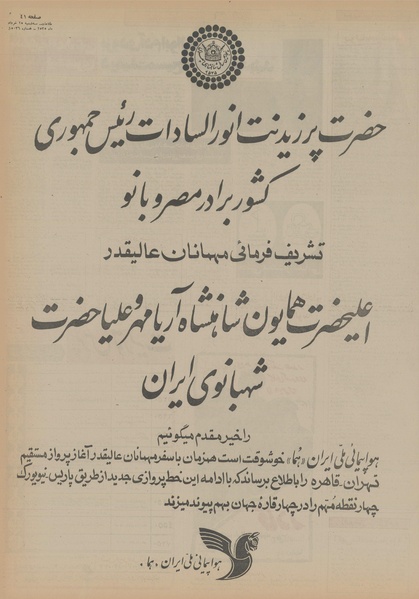 صفحه ۴۱
حضرت پرزیدنت انورالسادات رئیس جمهوری
کشور برادر مصر و بانو
تشریف فرمائی میهمانان عالیقدر
اعلیحضرت همایون شاهنشاه آریامهر و علیاحضرت
شهبانوی ایران
را خیر مقدم میگوئیم
هواپیمائی ملی ایران «هما» خوشوقت است همزمان با سفر میهمانان عالیقدر آغاز پرواز مستقیم
تهران-قاهره را باطلاع برساند که با ادامه این خط پروازی جدید از طریق پاریس-نیویورک
چهار نقطه مهم را در چهار قاره جهان بهم پیوند میزند
هواپیمائی ملی ایران. هما.